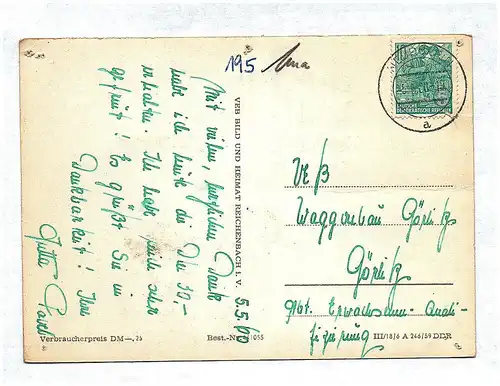 195
Mit vielen, herzlichen Dank
habe ich heute die 30,-
erhalten. Ich habe mich sehr
gefreut! Es grüßt Sie in
Dankbarkeit! Ihre
Jutta
5.5.60
VEB BILD UND HEIMAT REICHENBACH I. V.
DEUTSCHE
DEMOKRATISCHE REPUBLIK
a
VEB
Waggonbau Görlitz
Görlitz
Abt. Erwachsenen-Quali-
fizierung
Verbraucherpreis DM —,25
Best.-Nr.
III/18/6 A 246/59 DDR